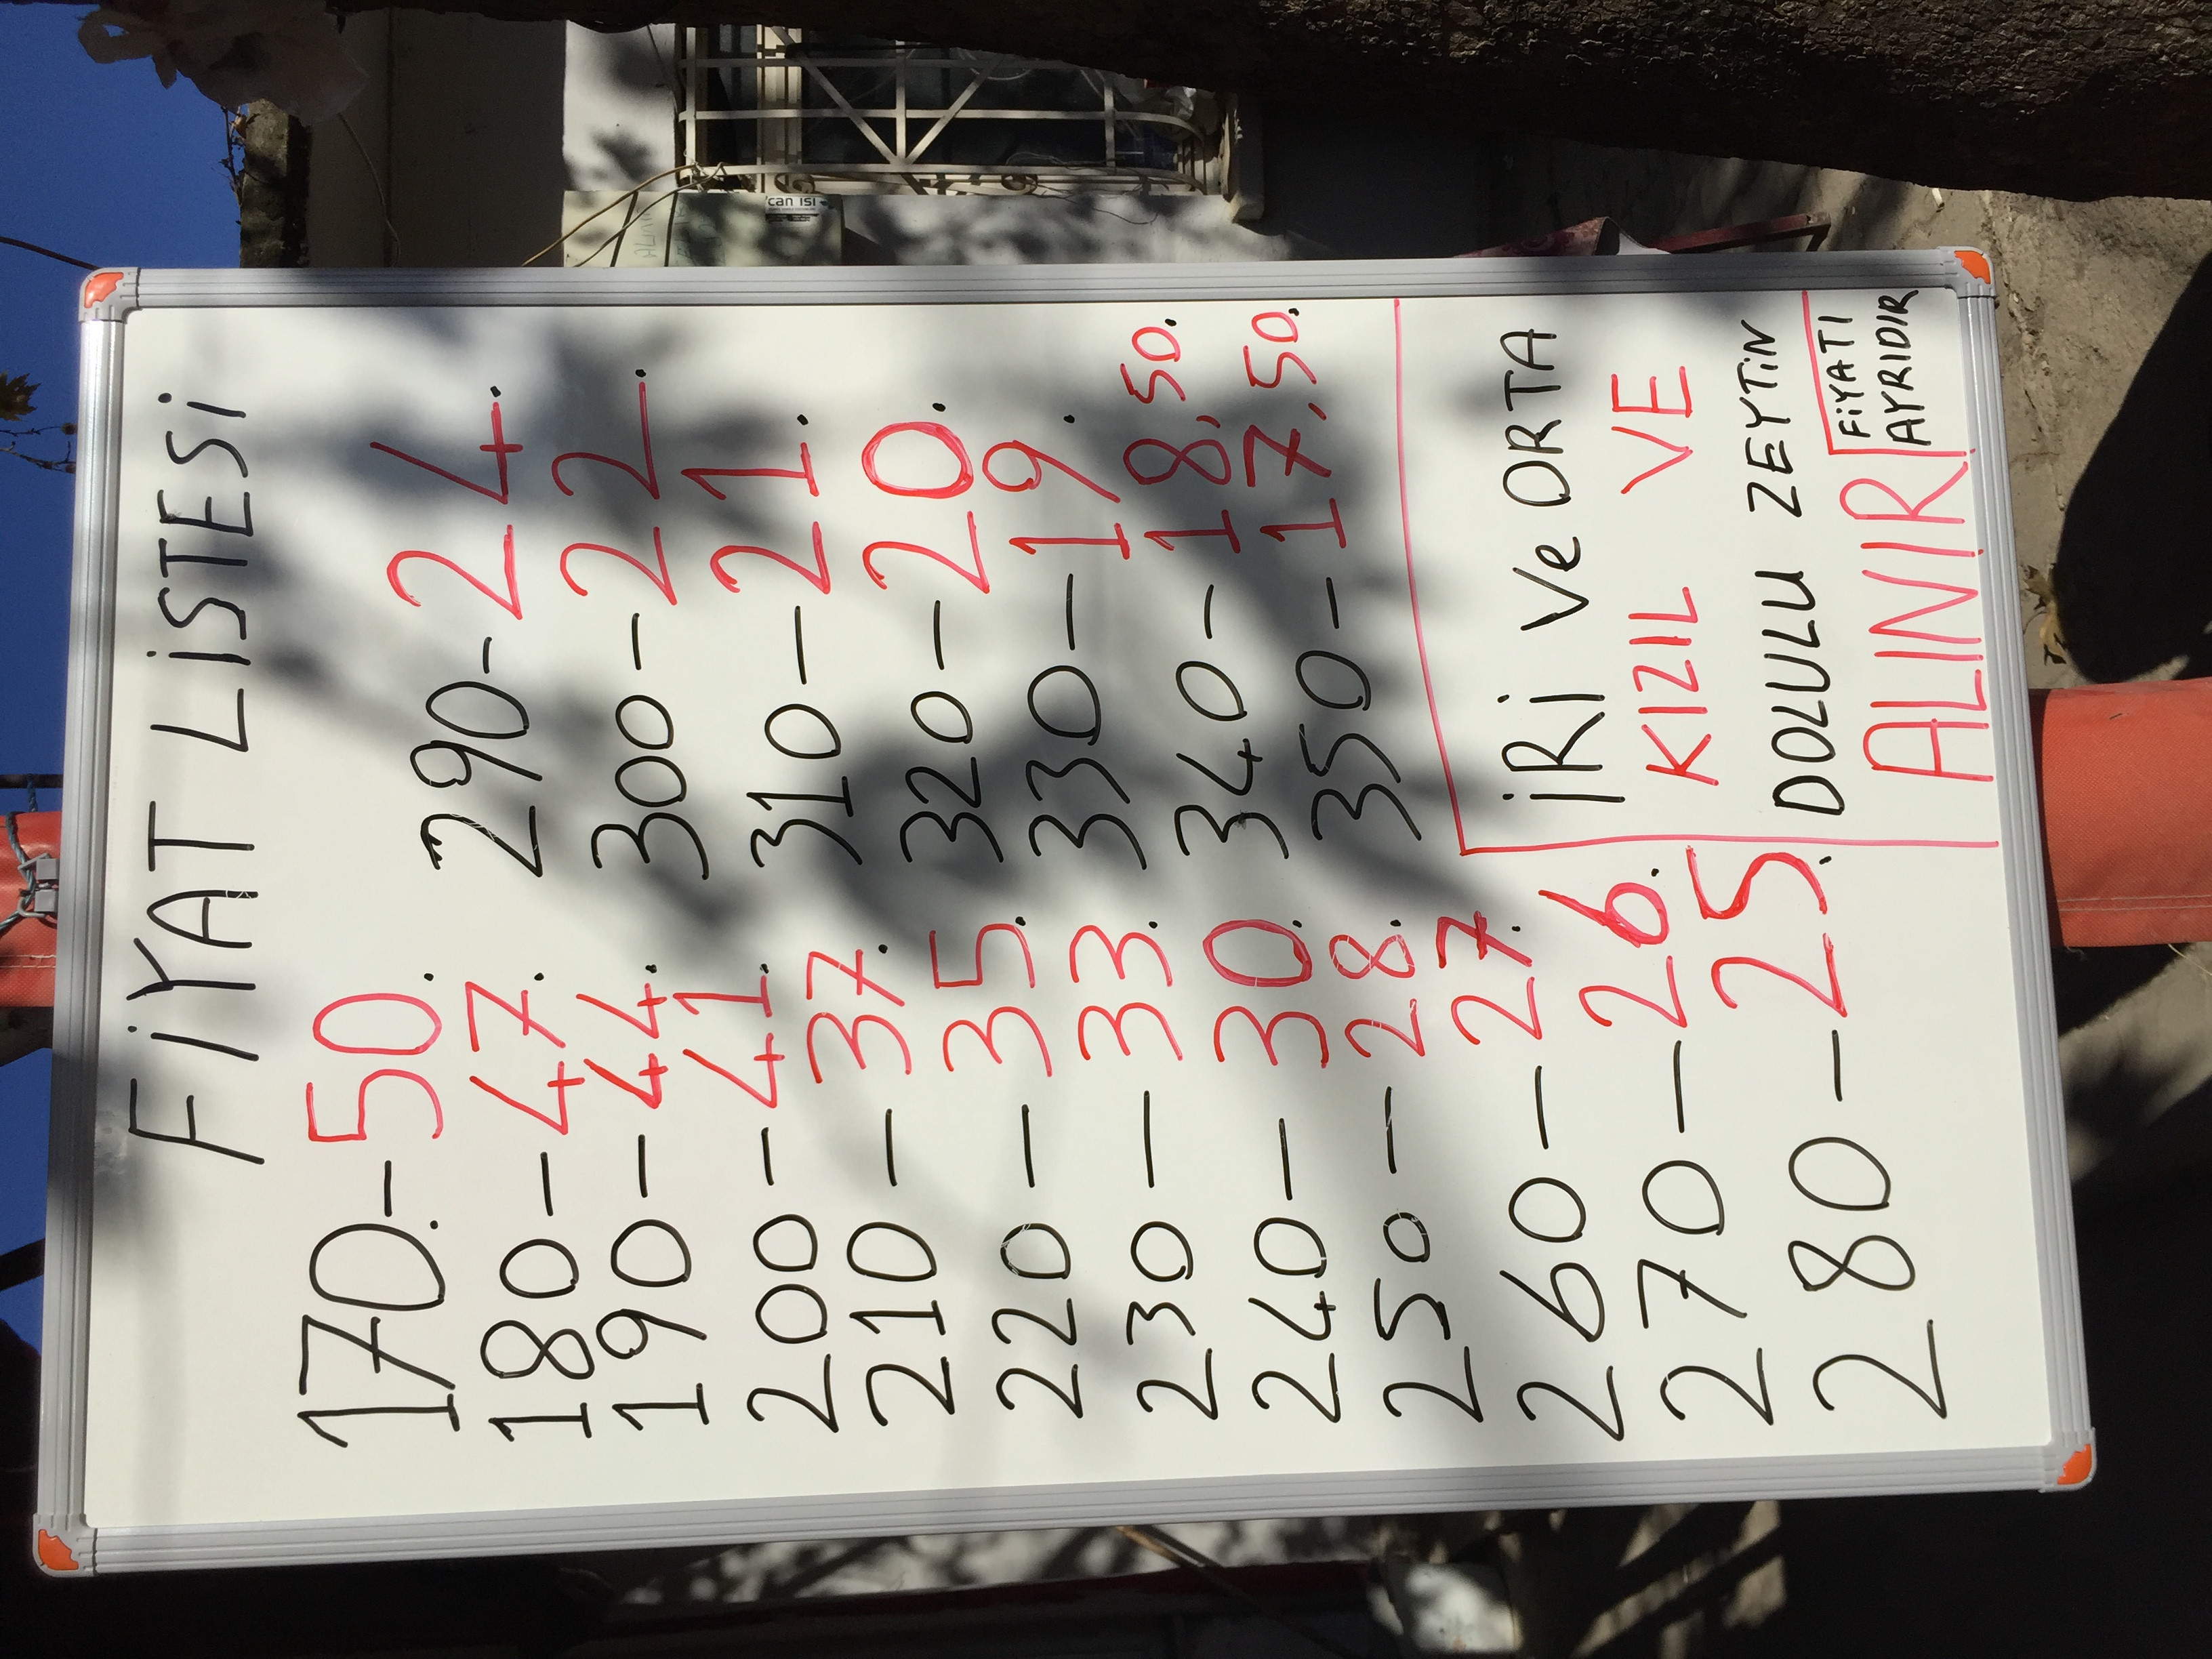 FİYAT LİSTESİ
170.-50.
180-47.
190-44.
200-41.
210-37.
220-35.
230-33.
240-30.
250-28.
260-27.
270-26.
280-25.
290-24.
300-22.
310-21.
320-20.
330-19.
340-18,50.
350-17,50.
İRİ Ve ORTA
KIZIL VE
DOLULU ZEYTİN
ALINIR
FİYATI
AYRIDIR
can ısı